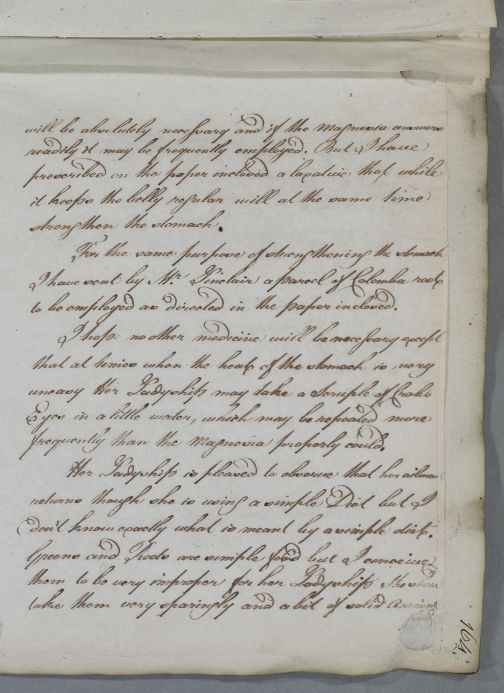 will be absolutely necessary and if the Magnesia answers
readily it may be frequently employed. But I have
prescribed on the paper inclosed a laxative that while
it keeps the belly regular will at the same time
strengthen the stomach.
For the same purpose of strengthening the stomach
I have sent by Mr. Sinclair a parcel of Colomba root
to be employed as directed in the paper inclosed.
I hope no other medicine will be necessary except
that at times when the heat of the stomach is very
uneasy Her Ladyship may take a Scruple of Crabs
Eyes in a little water, which may be repeated more
frequently than the Magnesia properly could.
Her Ladyship is pleased to observe that her ailment
returns though she is using a simple Diet but I
don't know exactly what is meant by a simple diet.
Greens and Roots are simple food but I conceive
them to be very improper for her Ladyship She should
take them very sparingly and a bit of solid Animal
164